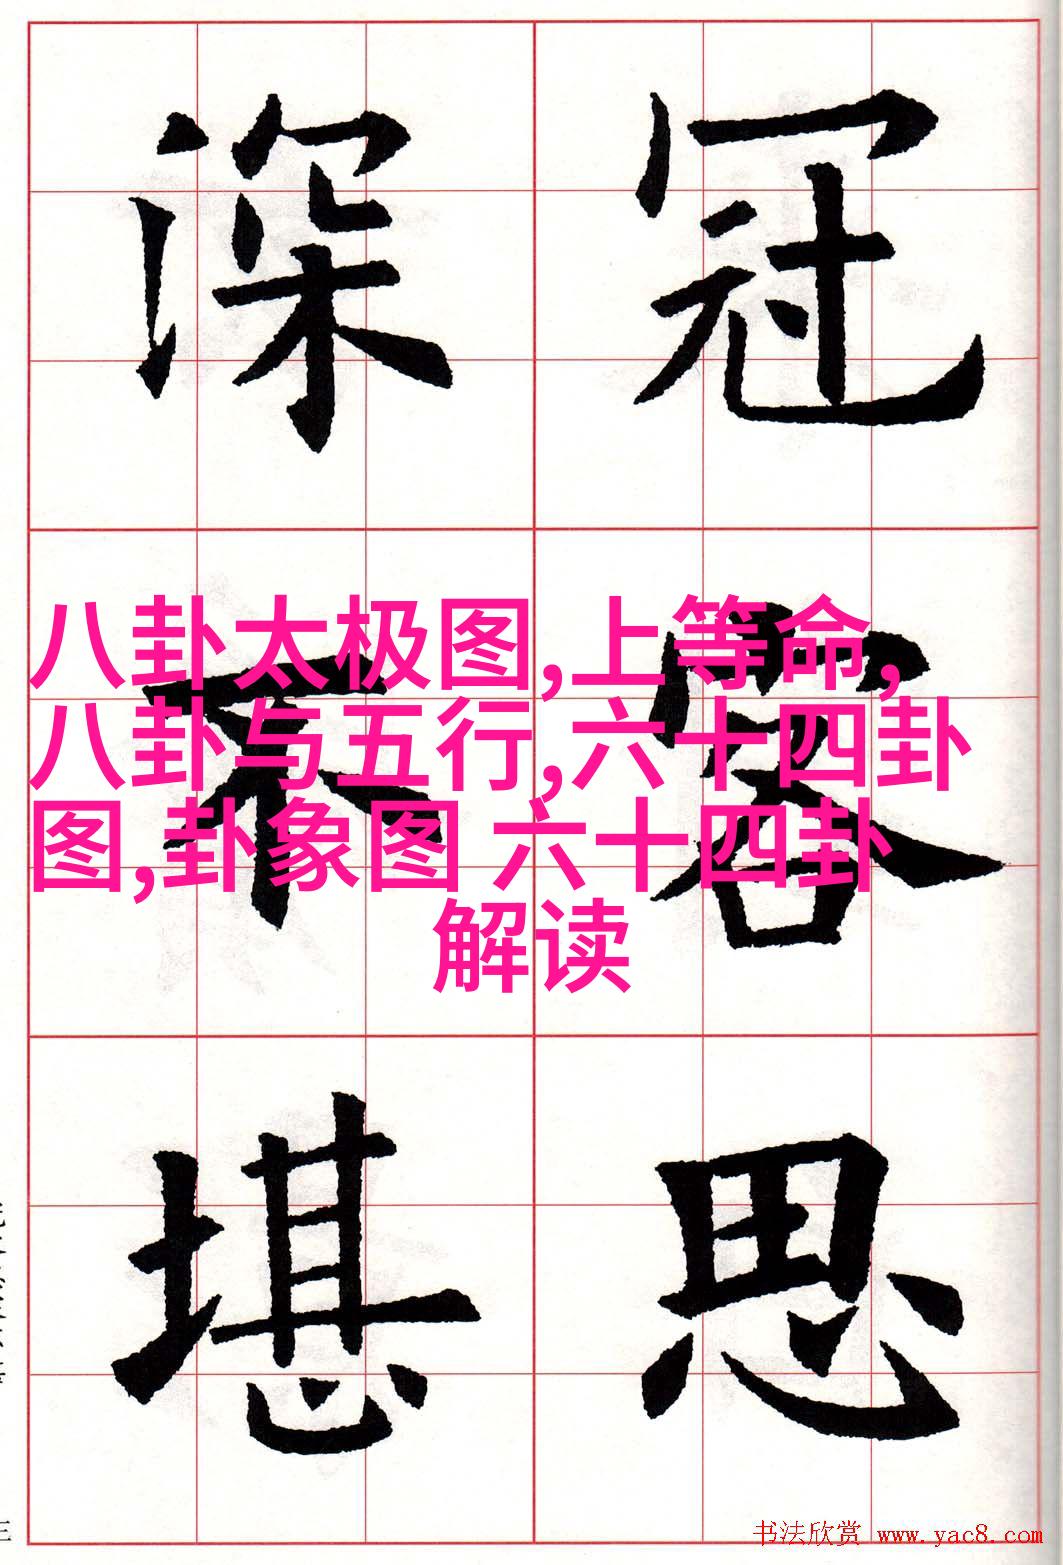 冠
容
思
深
不
堪
八卦太极图,上等命,
八卦与五行,六十四卦
图,卦象图 六十四卦
解读
三
书法欣赏 www.yac8.com